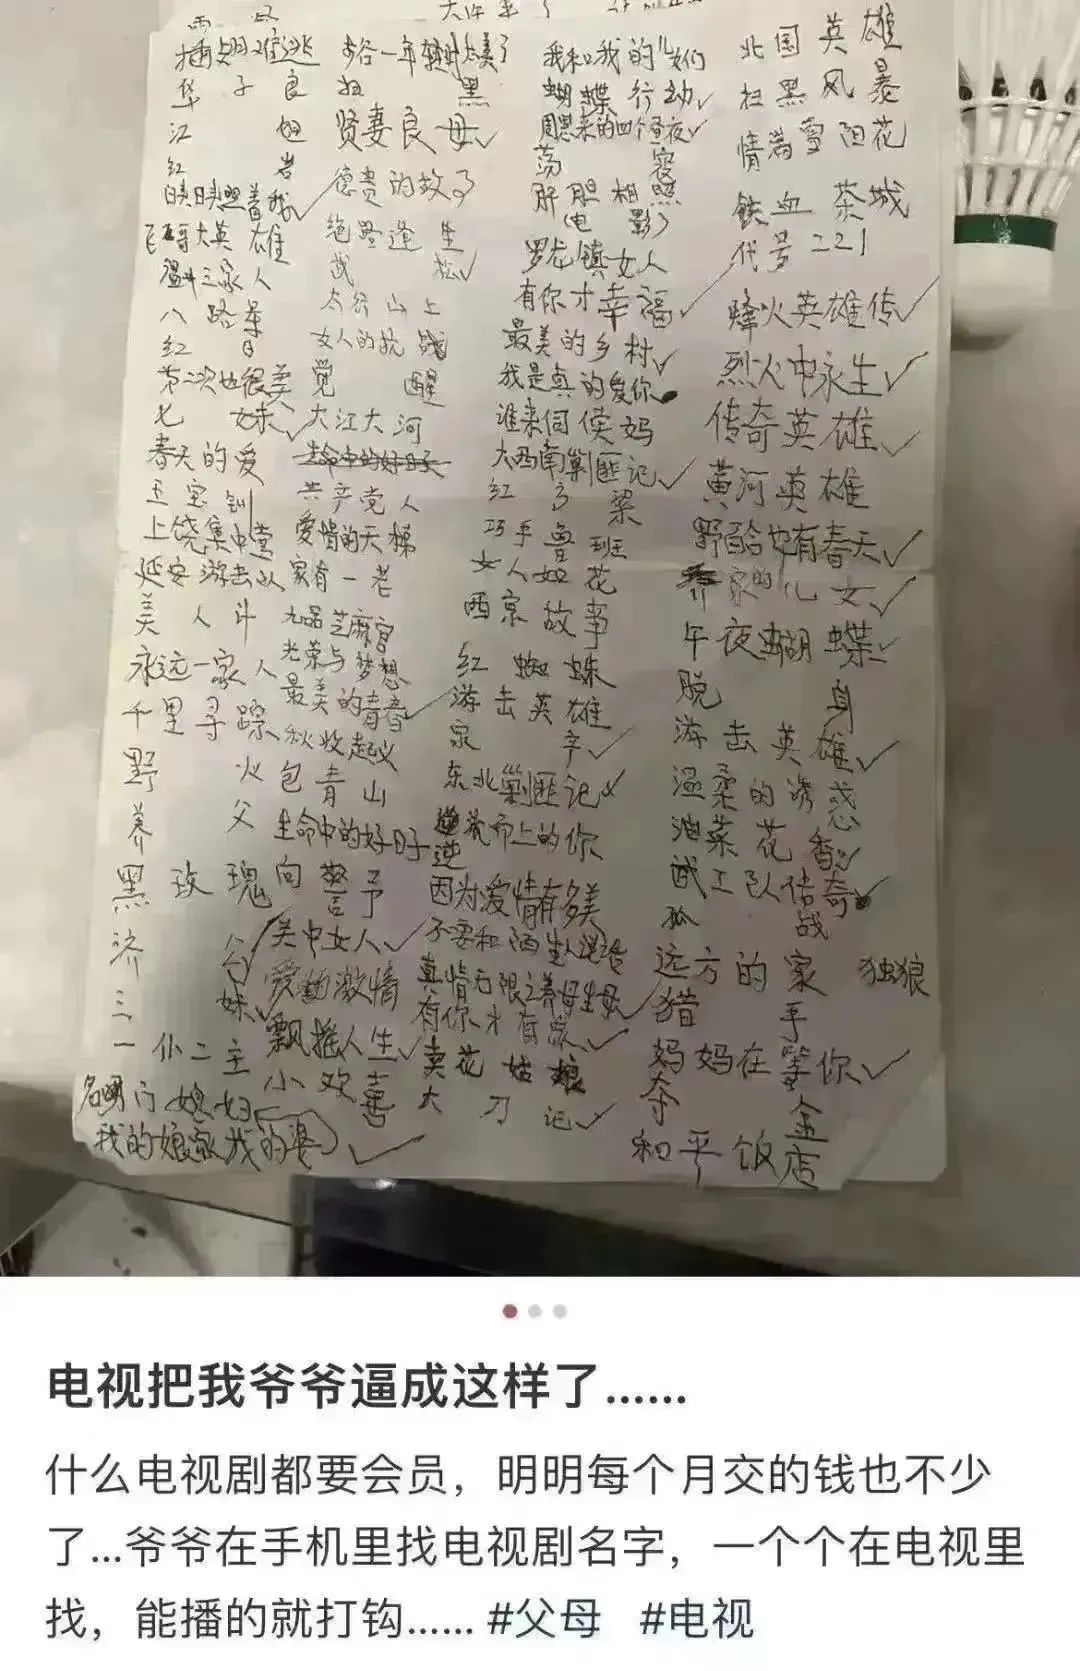 插翅难逃
华子良
江姐
红岩
日头日头照着我✓
飞哥大英雄
温州三家人
八路军
红日
第二次也很美
七妹✓
春天的爱
王宝钏
上饶集中营
延安游击队
美人斗
永远一家人
千里寻踪
野火
养父
黑玫瑰
济公
三妹✓
一仆二主
名门媳妇
我的娘家我的婆✓
贤妻良母✓
德贵的故事
绝路逢生
武松✓
太行山上
女人的抗战
觉醒
大江大河
生命中的好日子
共产党人
爱情的天梯
家有一老
九品芝麻官
光荣与梦想
最美的青春✓
秋收起义
包青山
生命中的好日子
向警予
关中女人✓
爱的激情
飘摇人生✓
小欢喜
我和我的儿女们
蝴蝶行动✓
周恩来的四个昼夜✓
荡寇
肝胆相照
电影了
罗龙镇女人
有你才幸福✓
最美的乡村✓
我是真的爱你
谁来伺候妈
大西南剿匪记✓
红高粱
巧手鲁班
女人如花
西京故事
红蜘蛛
游击英雄
东北剿匪记✓
逆流而上的你
因为爱情有多美
不要和陌生人说话
真情无限之养母生母✓
有你才有家✓
卖花姑娘
大刀记✓
北国英雄
扫黑风暴
情满雪阳花
铁血茶城
代号221
烽火英雄传✓
烈火中永生✓
传奇英雄✓
黄河英雄
野百合也有春天✓
乔家的儿女✓
午夜蝴蝶✓
脱身
游击英雄✓
温柔的诱惑
油菜花香✓
武工队传奇
孤战
远方的家 独狼
猎手
妈妈在等你✓
夺金
和平饭店
电视把我爷爷逼成这样了……
什么电视剧都要会员，明明每个月交的钱也不少
了...爷爷在手机里找电视剧名字，一个个在电视里
找，能播的就打钩…… #父母 #电视